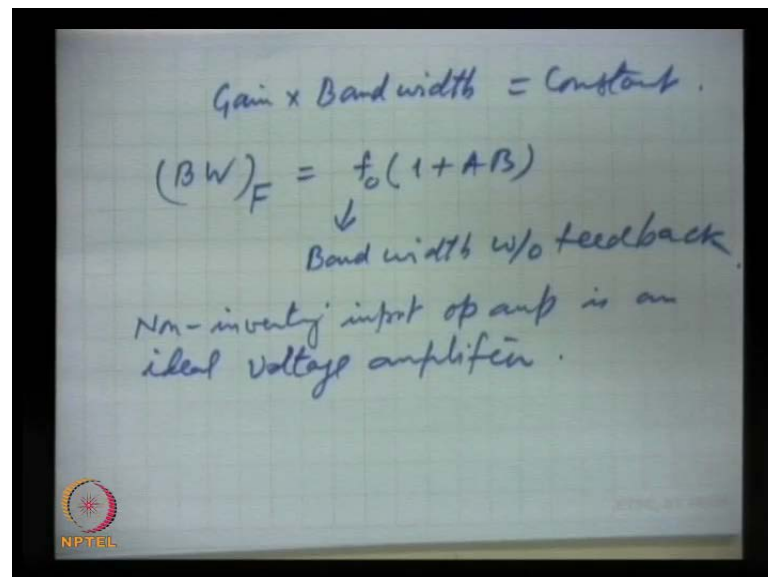 Gain x Bandwidth = Constant.
(BW)F = fo(1+AB)
↓
Bandwidth w/o feedback.
Non-inverting input op amp is an
ideal voltage amplifier.
NPTEL